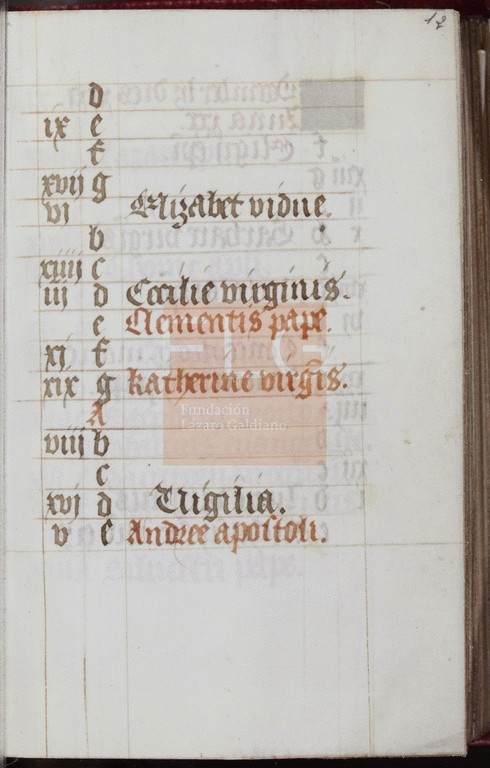 12
d
ix e
f
xvij g
vj Elizabet vidue.
b
xiiij c
iij d Cecilie virginis.
e Clementis pape.
xj f
xix g Katherine virgīs.
A
viij b
c
xvj d Vigilia.
v e Andree apostoli.
Fundación
Lázaro Galdiano